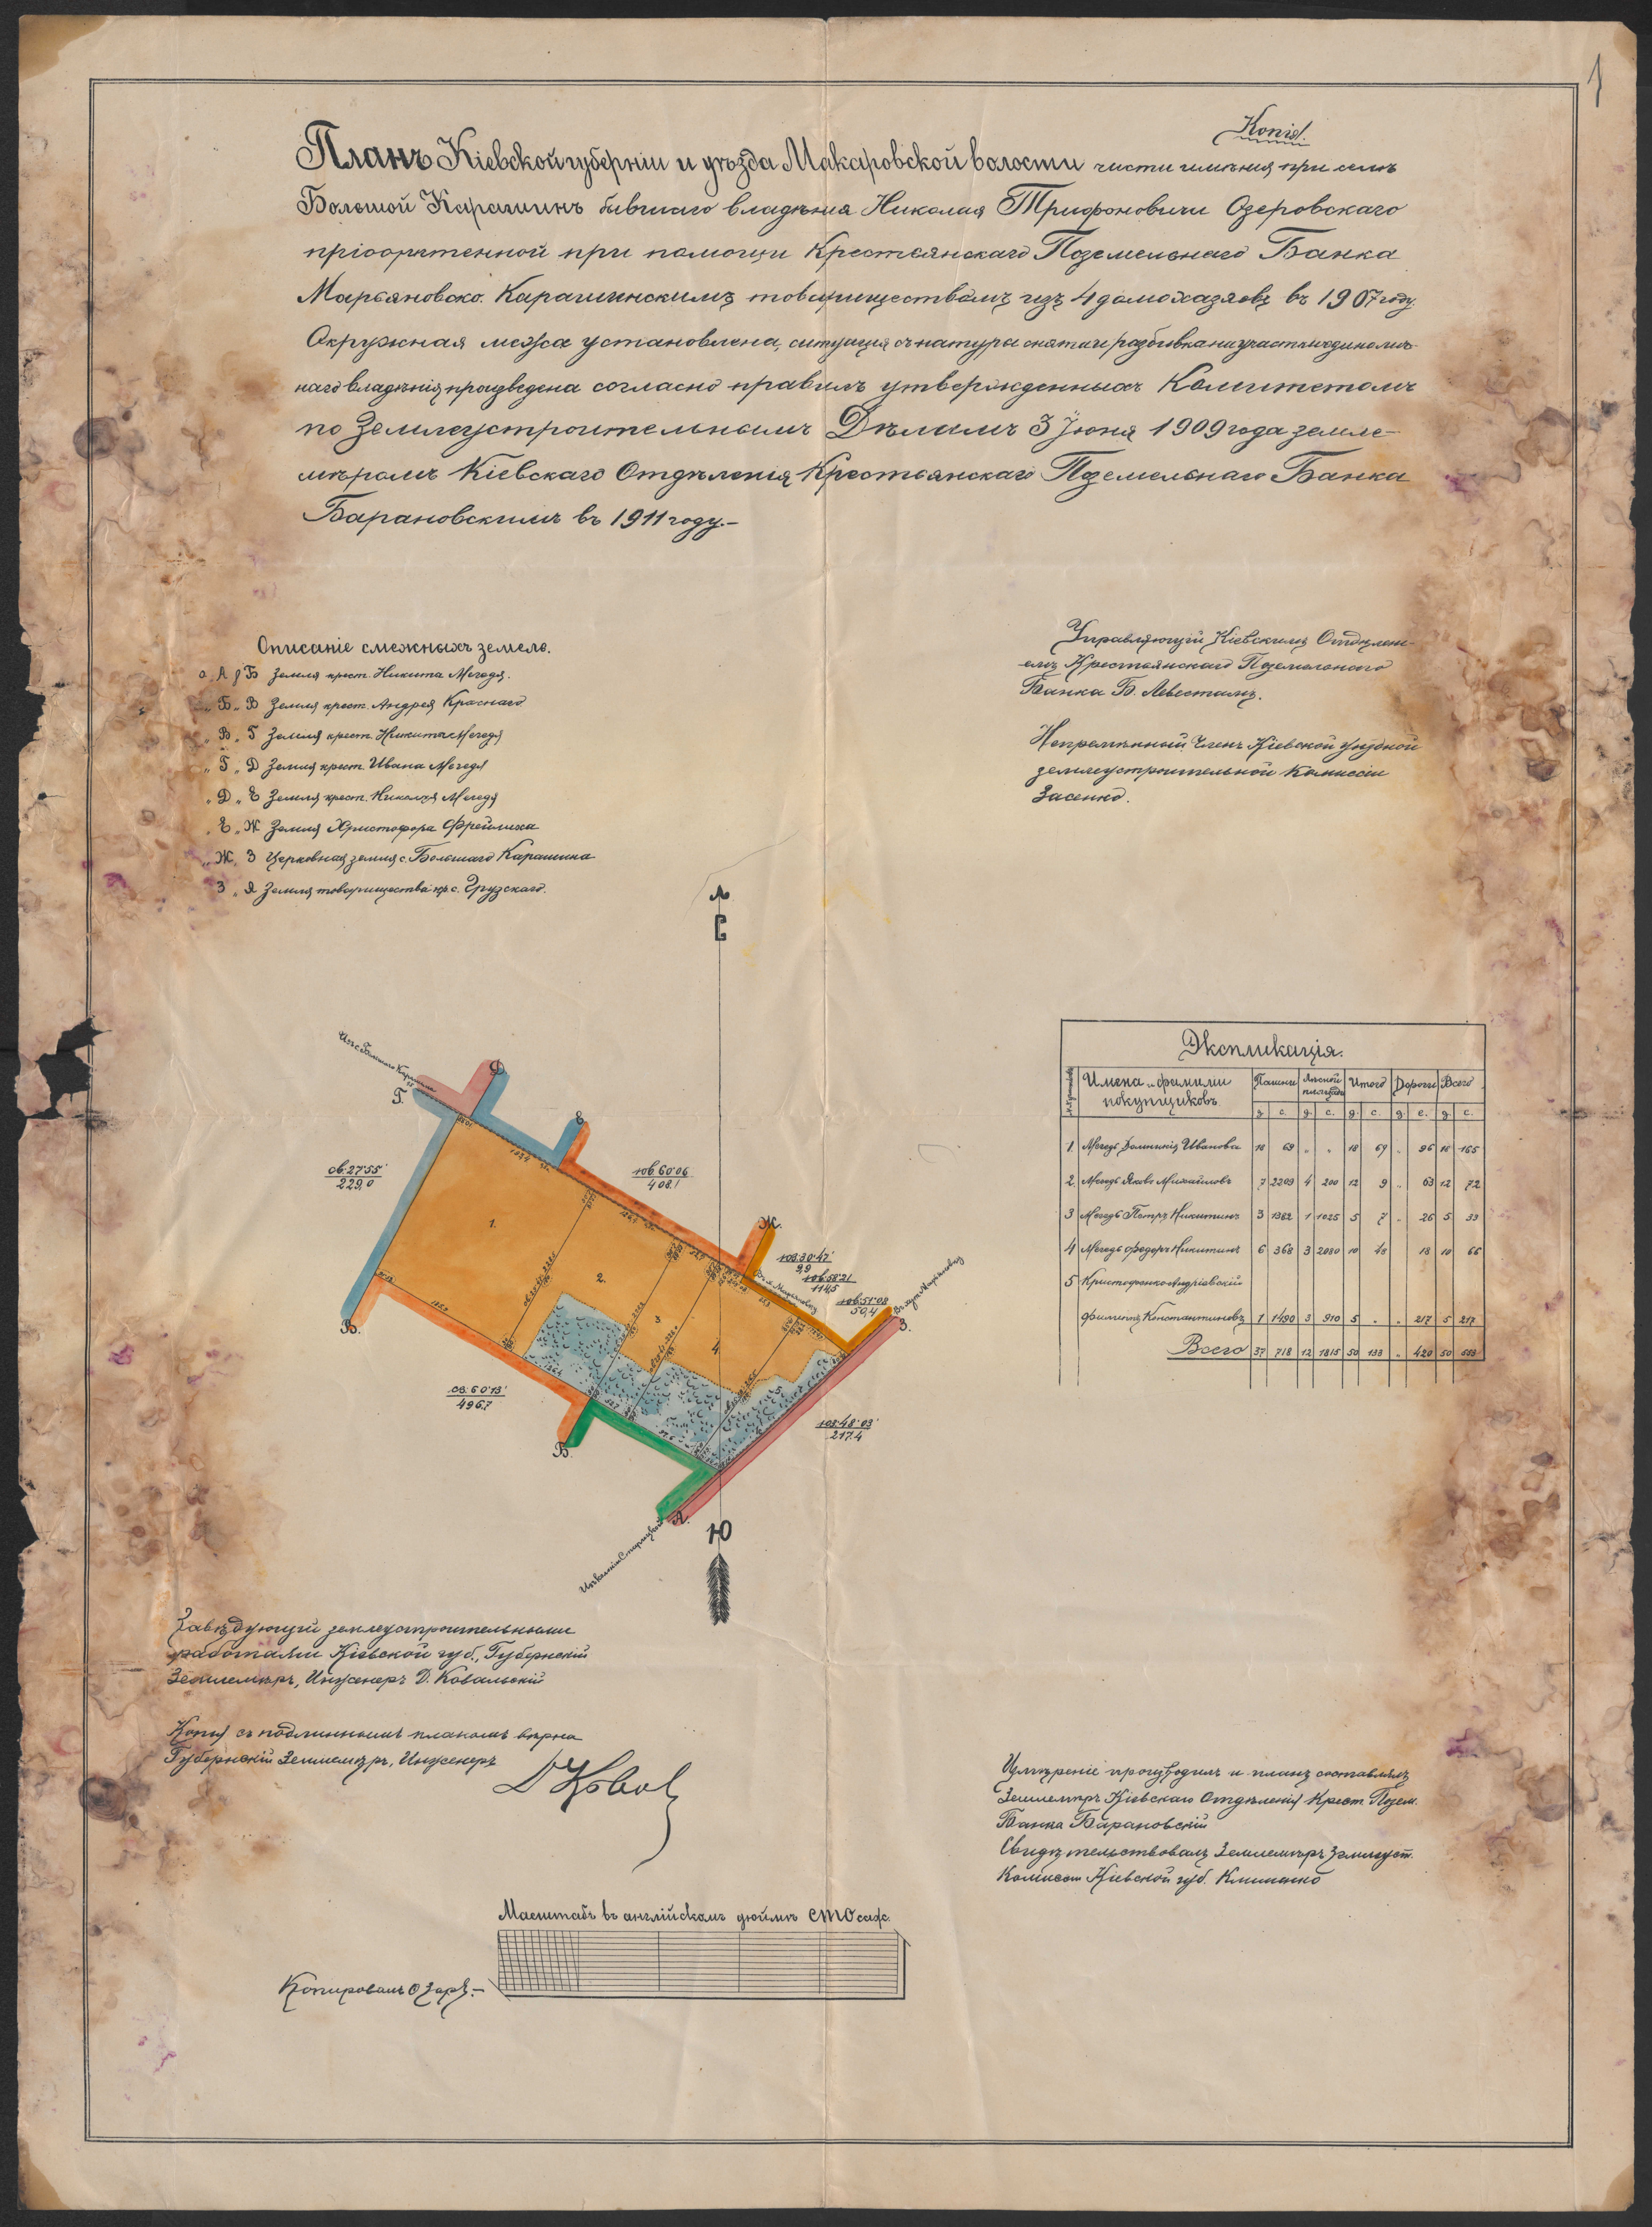 1
Копія.
Планъ Кіевской губерніи и уѣзда Макаровской волости части имѣнія при селѣ
Большой Карашинъ бывшаго владѣнія Николая Трифоновича Озеровскаго
пріобрѣтенной при помощи Крестьянскаго Поземельнаго Банка
Марьяновско-Карашинскимъ товариществомъ изъ 4 домохозяевъ въ 1907 году.
Окружная межа установлена, ситуація съ натуры снята и разбивка на участки единолич-
наго владѣнія произведена согласно правилъ утвержденныхъ Комитетомъ
по Землеустроительнымъ Дѣламъ 3 Іюня 1909 года земле-
мѣромъ Кіевскаго Отдѣленія Крестьянскаго Поземельнаго Банка
Барановскимъ въ 1911 году.-
Описаніе смежныхъ земель.
о. А д Б Земля крест. Никита Мегедя.
" Б " В Земля крест. Андрея Краснаго
" В " Г Земля крест. Никиты Мегедя
" Г " Д Земля крест. Ивана Мегедя
" Д " Е Земля крест. Николая Мегедя
" Е " Ж Земля Христофора Фрейлиха
" Ж " З Церковная земля с. Большаго Карашина
" З " А Земля товарищества кр. с. Грузскаго.
Управляющій Кіевскимъ Отдѣлен-
емъ Крестьянскаго Поземельнаго
Банка Б. Левестамъ.
Непремѣнный Членъ Кіевской Губной
землеустроительной Комиссіи
Засенко.
С
Г.
Д
Е
Ж.
З.
А.
Б.
В.
св. 27°55'
229,0
юв. 60°06
408.1
юз. 30°47'
9,9
юв. 58°21
114,5
юв. 51°08
50,4
юз. 48°03'
217.4
св. 60°13'
496.7
1.
2.
3
4
5
Ю
Экспликація.
Имена и фамиліи покупщиковъ Пашни Лѣсной площади Итого Дороги Всего
д. с. д. с. д. с. д. с. д. с.
1. Мегедь Домникія Иванова 18 69 " " 18 69 " 96 18 165
2. Мегедь Яковъ Михайловъ 7 2209 4 200 12 9 " 63 12 72
3 Мегедь Петръ Никитинъ 3 1382 1 1025 5 7 " 26 5 33
4 Мегедь Федоръ Никитинъ 6 368 3 2080 10 48 18 10 66
5 Кристофенко-Андріевскій
Филиппъ Константиновъ 1 1490 3 910 5 " " 217 5 217
Всего 37 718 12 1815 50 133 " 420 50 553
Завѣдующій землеустроительными
работами Кіевской губ., Губернскій
Землемѣръ, Инженеръ Д. Ковальскій
Копія съ подлиннымъ планомъ вѣрна
Губернскій Землемѣръ, Инженеръ
Измѣреніе производилъ и планъ составлялъ
Землемѣръ Кіевскаго Отдѣленія Крест. Позем.
Банка Барановскій
Свидѣтельствовалъ Землемѣръ Землеуст.
Комиссіи Кіевской губ. Клименко
Масштабъ въ англійскомъ дюймѣ сто саж.
Копировалъ